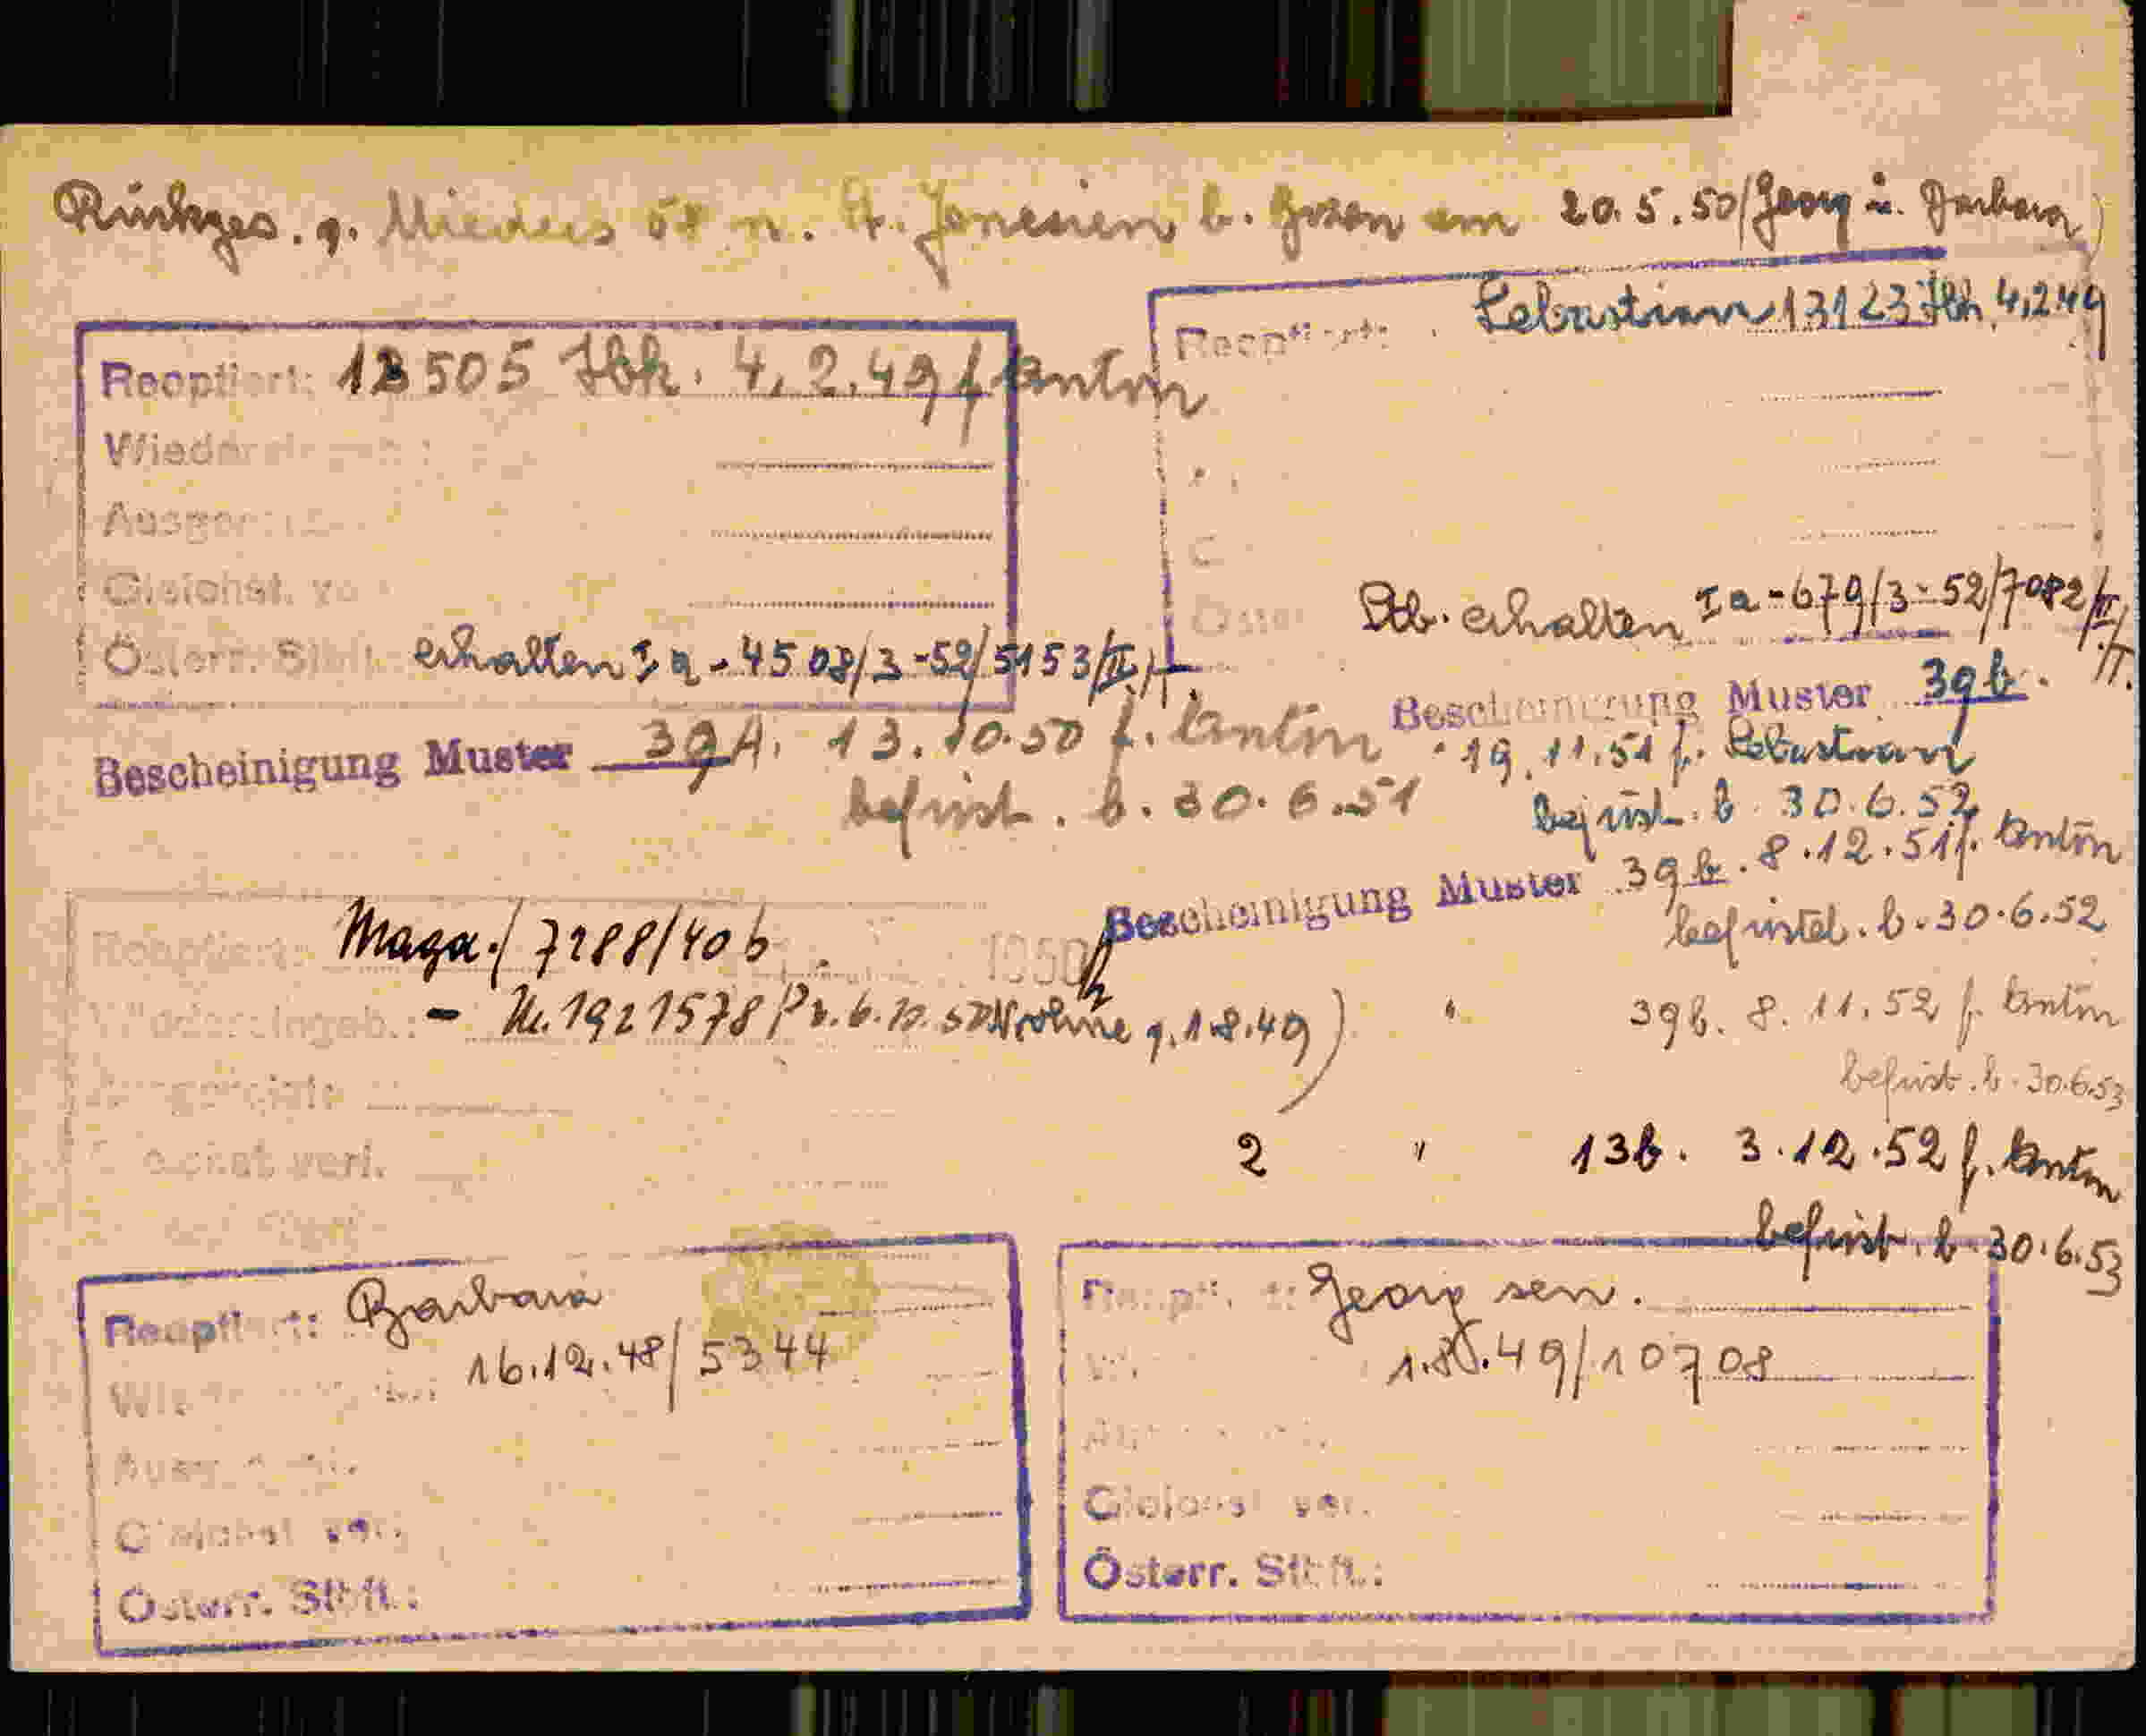 Rückges. g. Mieders 58 n. St. Jenesien b. Bozen am 20.5.50/Georg u. Barbara)
Reoptiert: 12505 Ibk. 4.2.49 f. Anton
Wiedereingeb.:
Ausgereiste
Gleichst. ver.
Österr. Stbft. erhalten Ia-4508/3-52/5153/II.
Bescheinigung Muster 39A. 13.10.50 f. Anton
befrist. b. 30.6.51
Reoptiert: Sebastian 13123 Ibk. 4.2.49
Stb. erhalten Ia-679/3-52/7082/II/
Bescheinigung Muster 39b.
19.11.51 f. Sebastian
befrist. b. 30.6.52
Bescheinigung Muster 39b. 8.12.51 f. Anton
befristet. b. 30.6.52
" 39b. 8.11.52 f. Anton
befrist. b. 30.6.53
2 " 13b. 3.12.52 f. Anton
befrist. b. 30.6.53
Reoptiert: Maga./7288/40 b 1950
Wiedereingeb.: - 1921578
g. 1.8.49)
Reoptiert: Barbara
16.12.48/5344
Gleichst ver.
Österr. Stbft.:
Reoptiert: Georg sen.
49/10708
Gleichst ver.
Österr. Stbft.: